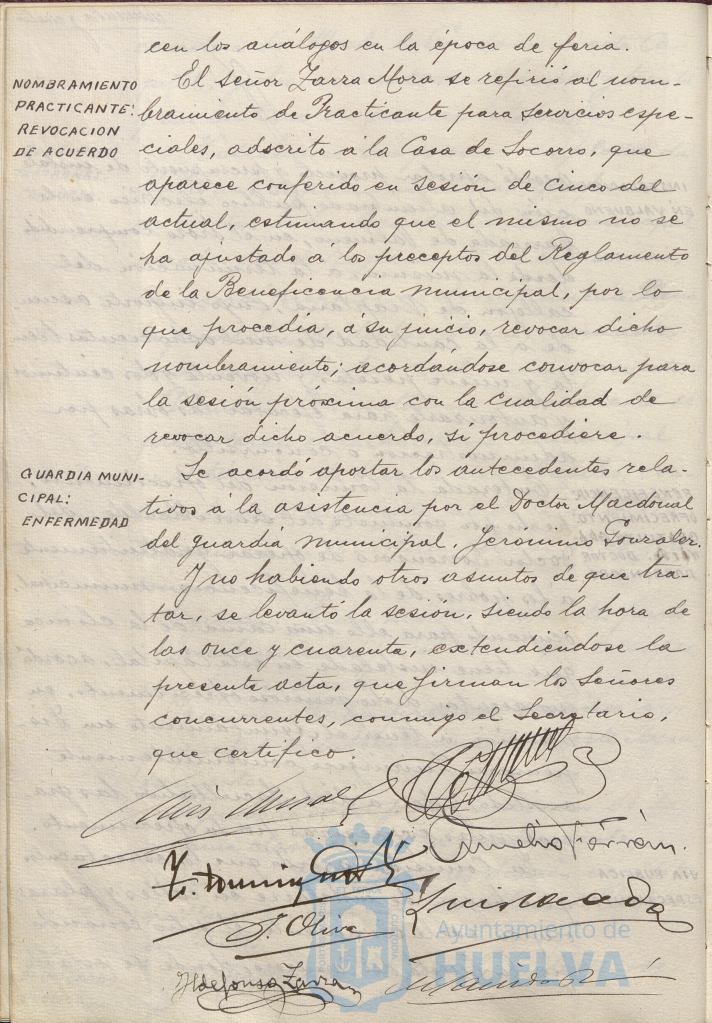 con los análogos en la época de feria.
NOMBRAMIENTO
PRACTICANTE:
REVOCACION
DE ACUERDO
El señor Zarra Mora se refirió al nom-
bramiento de Practicante para servicios espe-
ciales, adscrito á la Casa de Socorro, que
aparece conferido en sesion de cinco del
actual, estimando que el mismo no se
ha ajustado á los preceptos del Reglamento
de la Beneficencia municipal, por lo
que procedia, á su juicio, revocar dicho
nombramiento; acordándose convocar para
la sesión próxima con la cualidad de
revocar dicho acuerdo, si procediere.
GUARDIA MUNI-
CIPAL:
ENFERMEDAD
Se acordó aportar los antecedentes rela-
tivos á la asistencia por el Doctor Macdonal
del guardia municipal, Jerónimo Gonzalez.
Y no habiendo otros asuntos de que tra-
tar, se levantó la sesión, siendo la hora de
las once y cuarenta, extendiéndose la
presente acta, que firman los Señores
concurrentes, conmigo el Secretario,
que certifico.
J. Oliva
Ildefonso Zarra
Ayuntamiento de
HUELVA